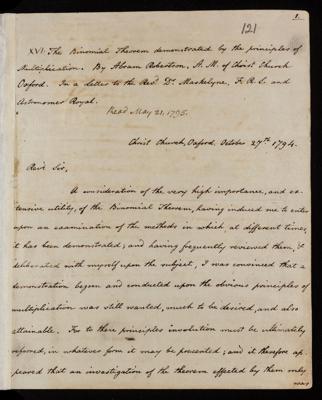 1.
121
XVI. The Binomial Theorem demonstrated by the principles of
Multiplication. By Abram Robertson, A. M. of Christ Church
Oxford. In a letter to the Revd. Dr. Maskelyne, F. R. S. and
Astronomer Royal.
Read May 21, 1795.
Christ Church, Oxford. October 27th. 1794.
Revd Sir,
A consideration of the very high importance, and ex-
tensive utility, of the Binomial Theorem, having induced me to enter
upon an examination of the methods in which, at different times,
it has been demonstrated; and having frequently reviewed them, &
deliberated with myself upon the subject, I was convinced that a
demonstration begun and conducted upon the obvious principles of
multiplication was still wanted, much to be desired, and also
attainable. For to these principles involution must be ultimately
referred, in whatever form it may be presented; and it therefore ap-
peared that an investigation of the theorem effected by them only
was